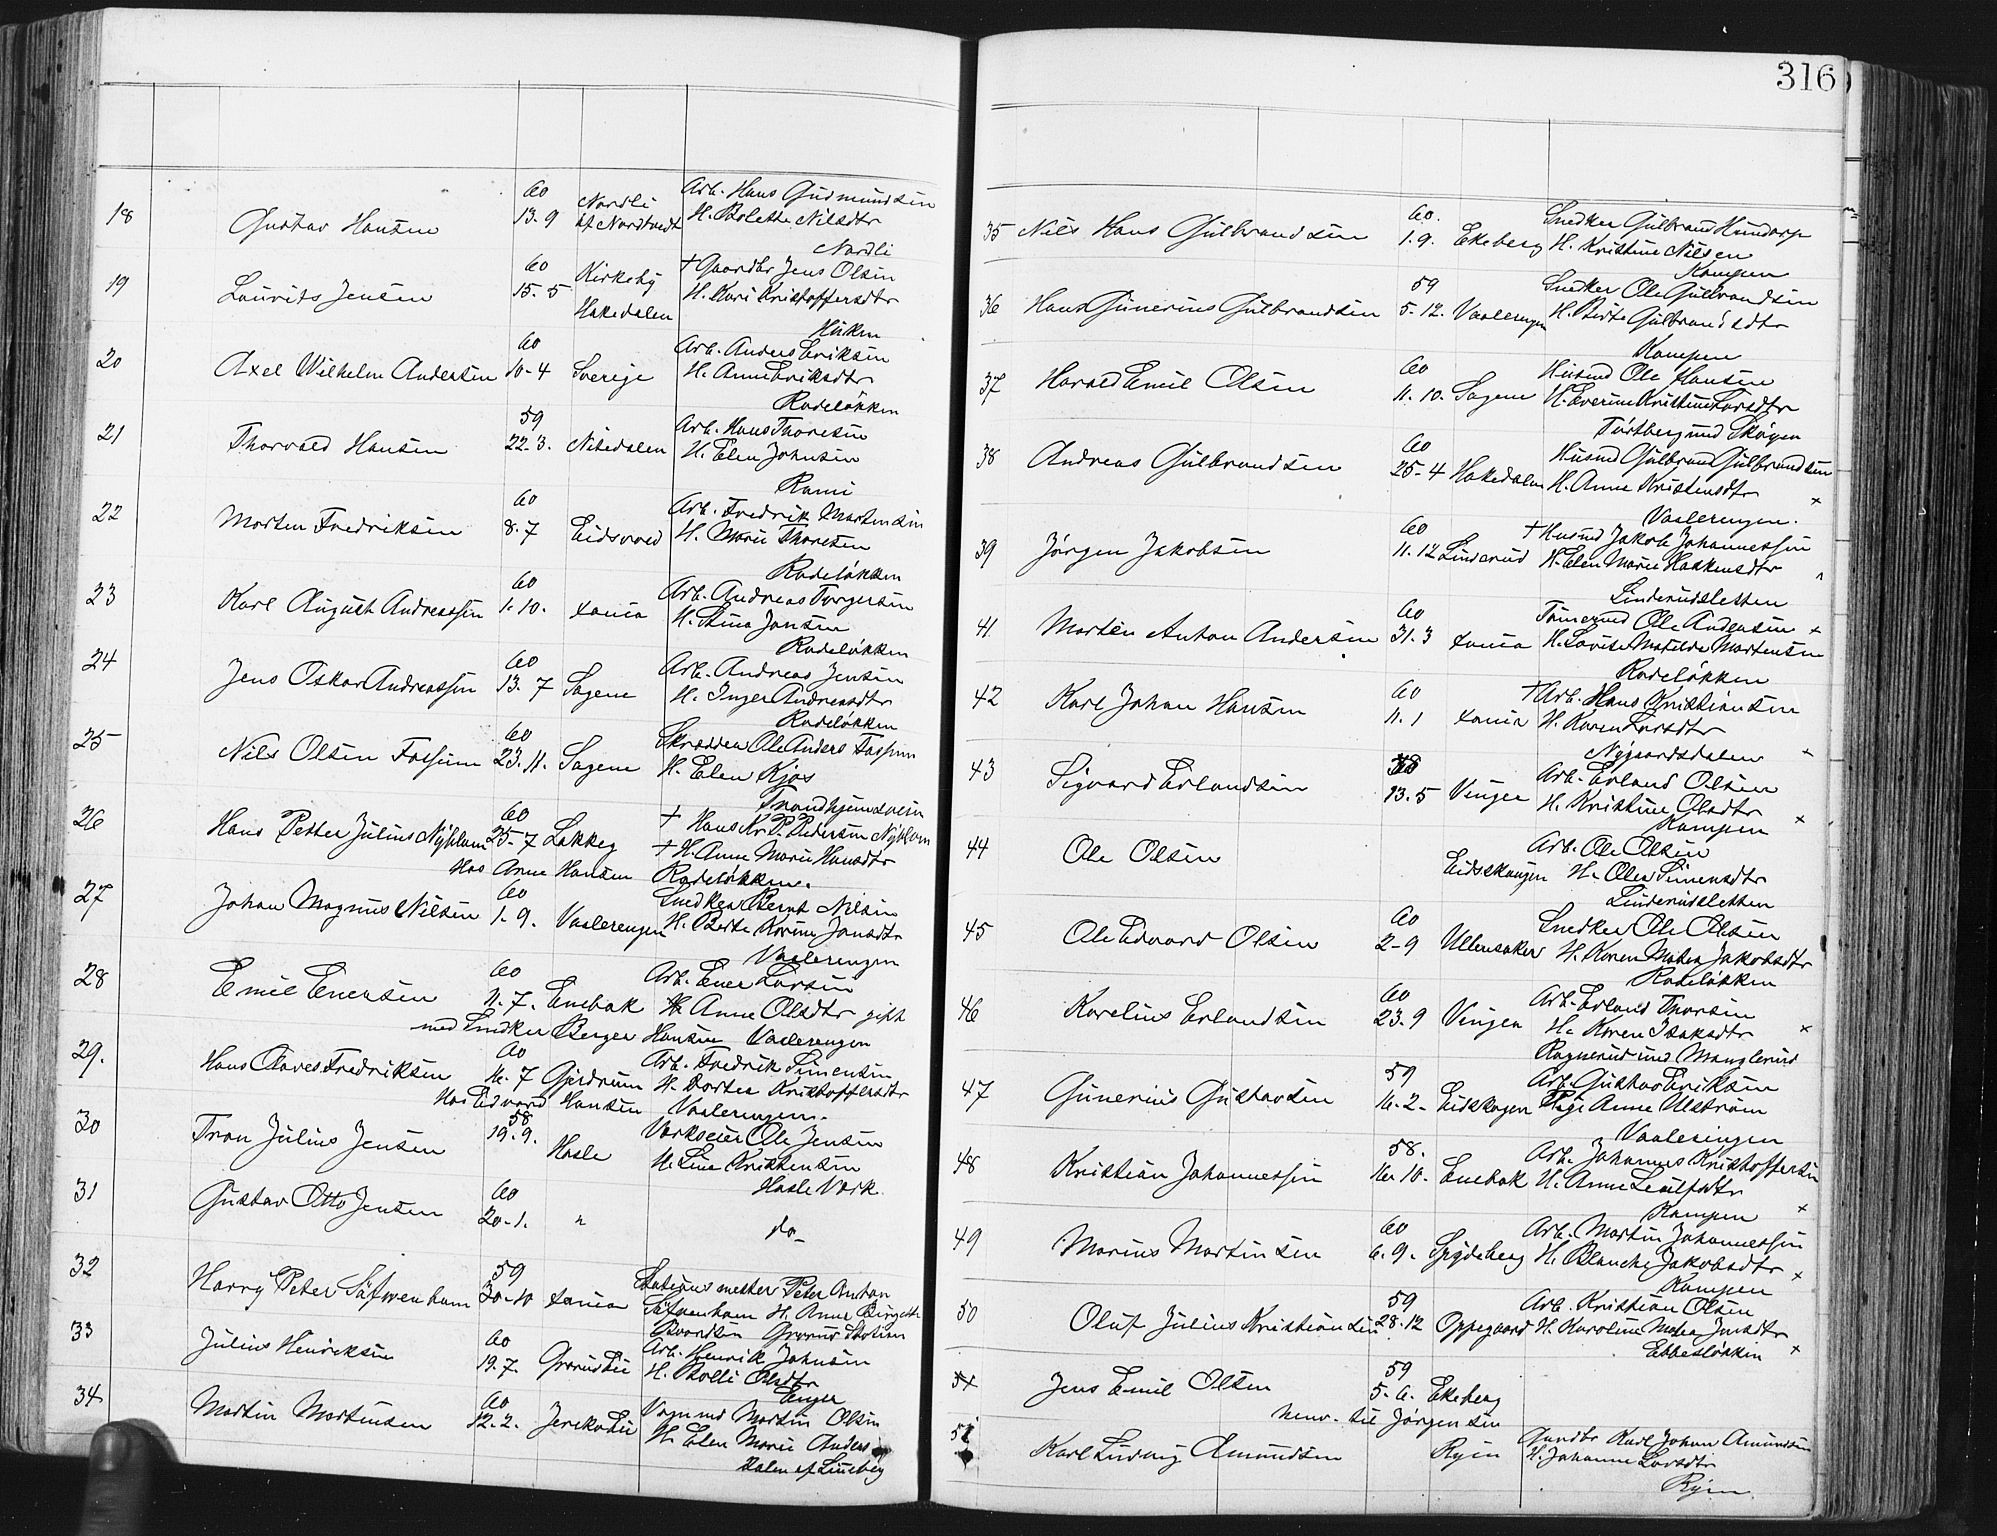 316
18
Gustav Hansen
60
13. 9
Nordli
af Nordtvedt
Arb. Hans Gudmundsen
H. Bolette Nilsdtr
Nordli
19
Laurits Jensen
60
15. 5
Kirkeby
Hakedalen
+ Gaardbr Jens Olsen
H. Kari Kristoffersdtr
20
Axel Wilhelm Andersen
60
10-4
Sverige
Arb. Anders Eriksen
H. Anne Eriksdtr
Rodeløkken
21
Thorvald Hansen
59
22. 3.
Nitedalen
Arb. Hans Thoresen
H. Elen Johnsen
22
Morten Fredriksen
60
8. 7
Eidsvold
Arb. Fredrik Martensen
H. Marie Thoresen
Rodeløkken
23
Karl August Andreassen
60
1. 10.
xania
Arb. Andreas Torgersen
H. Stina Jansen
Rodeløkken
24
Jens Oskar Andreassen
60
13. 7
Sagene
Arb. Andreas Jensen
H. Inger Andreasdtr
Rodeløkken
25
Nils Olsen Fossum
60
23. 11.
Sagene
Skrædder Ole Anders Fossum
H. Elen Kjos
Trondhjemsveien
26
Hans Petter Julius Nyblom
60
25-7
Lakkeg
+ Hans Kr. P. Pedersen Nyblom
+ H. Anne Marie Hansdtr
Hos Anne Hansen Rodeløkken.
27
Johan Magnus Nilsen
60
1. 9.
Vaalerengen
Snedker Bernt Nilsen
H. Berte Karine Jansdtr
Vaalerengen
28
Emil Enersen
60
11. 7.
Enebak
Arb. Ener Larsen
H. Anne Olsdtr gift
med Snedker Berger Hansen Vaalerengen
29.
Hans Claves Fredriksen
60
16. 7
Gjerdrum
Arb. Fredrik Simensen
H. Dortea Kristoffersdtr
Hos Edvard Hansen Vaalerengen.
30
Tron Julius Jensen
58
19. 9.
Hasle
Værkseier Ole Jensen
H. Line Kristensen
Hasle Værk.
31
Gustav Otto Jensen
60
20-1.
"
do
32
Harry Peter Säfvenbom
59
30-10
xania
Stationsmester Peter Anton
Säfvenbom H. Anne Birgitte
Grorud Station
33
Julius Henriksen
60
19. 7
Grorudlie
Arb. Henrik Johnsen
H. Bolli Olsdtr
34
Martin Mortensen
60
12. 2.
Jerikolie
Vognmd Martin Olsen
H. Elen Marie Anders
Dalen af Lineberg
35
Nils Hans Gulbrandsen
60.
1. 9.
Ekeberg
Snedker Gulbrand Hundorp
H. Kristine Nilsen
Kampen
36
Hans Gunerius Gulbrandsen
59
5-12.
Vaalerengen
Snedker Ole Gulbrandsen
H. Berte Gulbrandsdtr
Kampen
37
Harald Emil Olsen
60
11. 10.
Sagene
Husmd Ole Hansen
H. Everine Kristine Larsdtr
Tørtberg und Skøyen
38
Andreas Gulbrandsen
60
25-4
Hakedalen
Husmd Gulbran Gulbrandsen
H. Anne Kristensdtr
Vaalerengen.
39
Jørgen Jakobsen
60
11. 12
Linderud
+ Husmd Jakob Johannessen
H. Elen Marie Haakensdtr
Linderudsletten
41
Martin Anton Andersen
60
31. 3
xania
Tømermd Ole Andersen
H. Lovise Matilde Mortensen
Rodeløkken
42
Karl Johan Hansen
60
11. 1
xania
+ Arb. Hans Kristiansen
H. Karen Larsdtr
Nygaardsdalen
43
Sigvard Erlandsen
13. 5
Vinger
Arb. Erland Olsen
H. Kristine Olsdtr
Kampen
44
Ole Olsen
Eidsskougen
Arb. Ole Olsen
H. Olea Simensdtr
Linderudsletten
45
Ole Edvard Olsen
60
2-9
Ullensaker
Snedker Ole Olsen
H. Karen Matea Jakobsdtr
Rodeløkken
46
Karelius Erlandsen
60
23. 9
Vinger
Arb. Erland Thorsen
H. Karen Isaksdtr
Rognerud und Manglerud
47
Gunerius Gustavsen
59
16-2-
Eidskogen
Arb. Gustav Eriksen
Pige Anne Ulstrøm
Vaaleringen
48
Kristian Johannessen
58.
16-10.
Enebak
Arb. Johannes Kristoffersen
H. Anne
Kampen
49
Marius Martinsen
60
6. 9.
Spydeberg
Arb. Martin Johannessen
H. Blanche Jakobsdtr
Kampen
50
Oluf Julius Kristiansen
59
28. 12
Oppegaard
Arb. Kristian Olsen
H. Karoline Matea Jensdtr
Ebbesløkken
51
Jens Emil Olsen
59
5-6.
Ekeberg
henv. til Jørgensen
51
Karl Ludvig Amundsen
Ryen
Gaardbr Karl Johan Amundsen
H. Johanne Larsdtr
Ryen